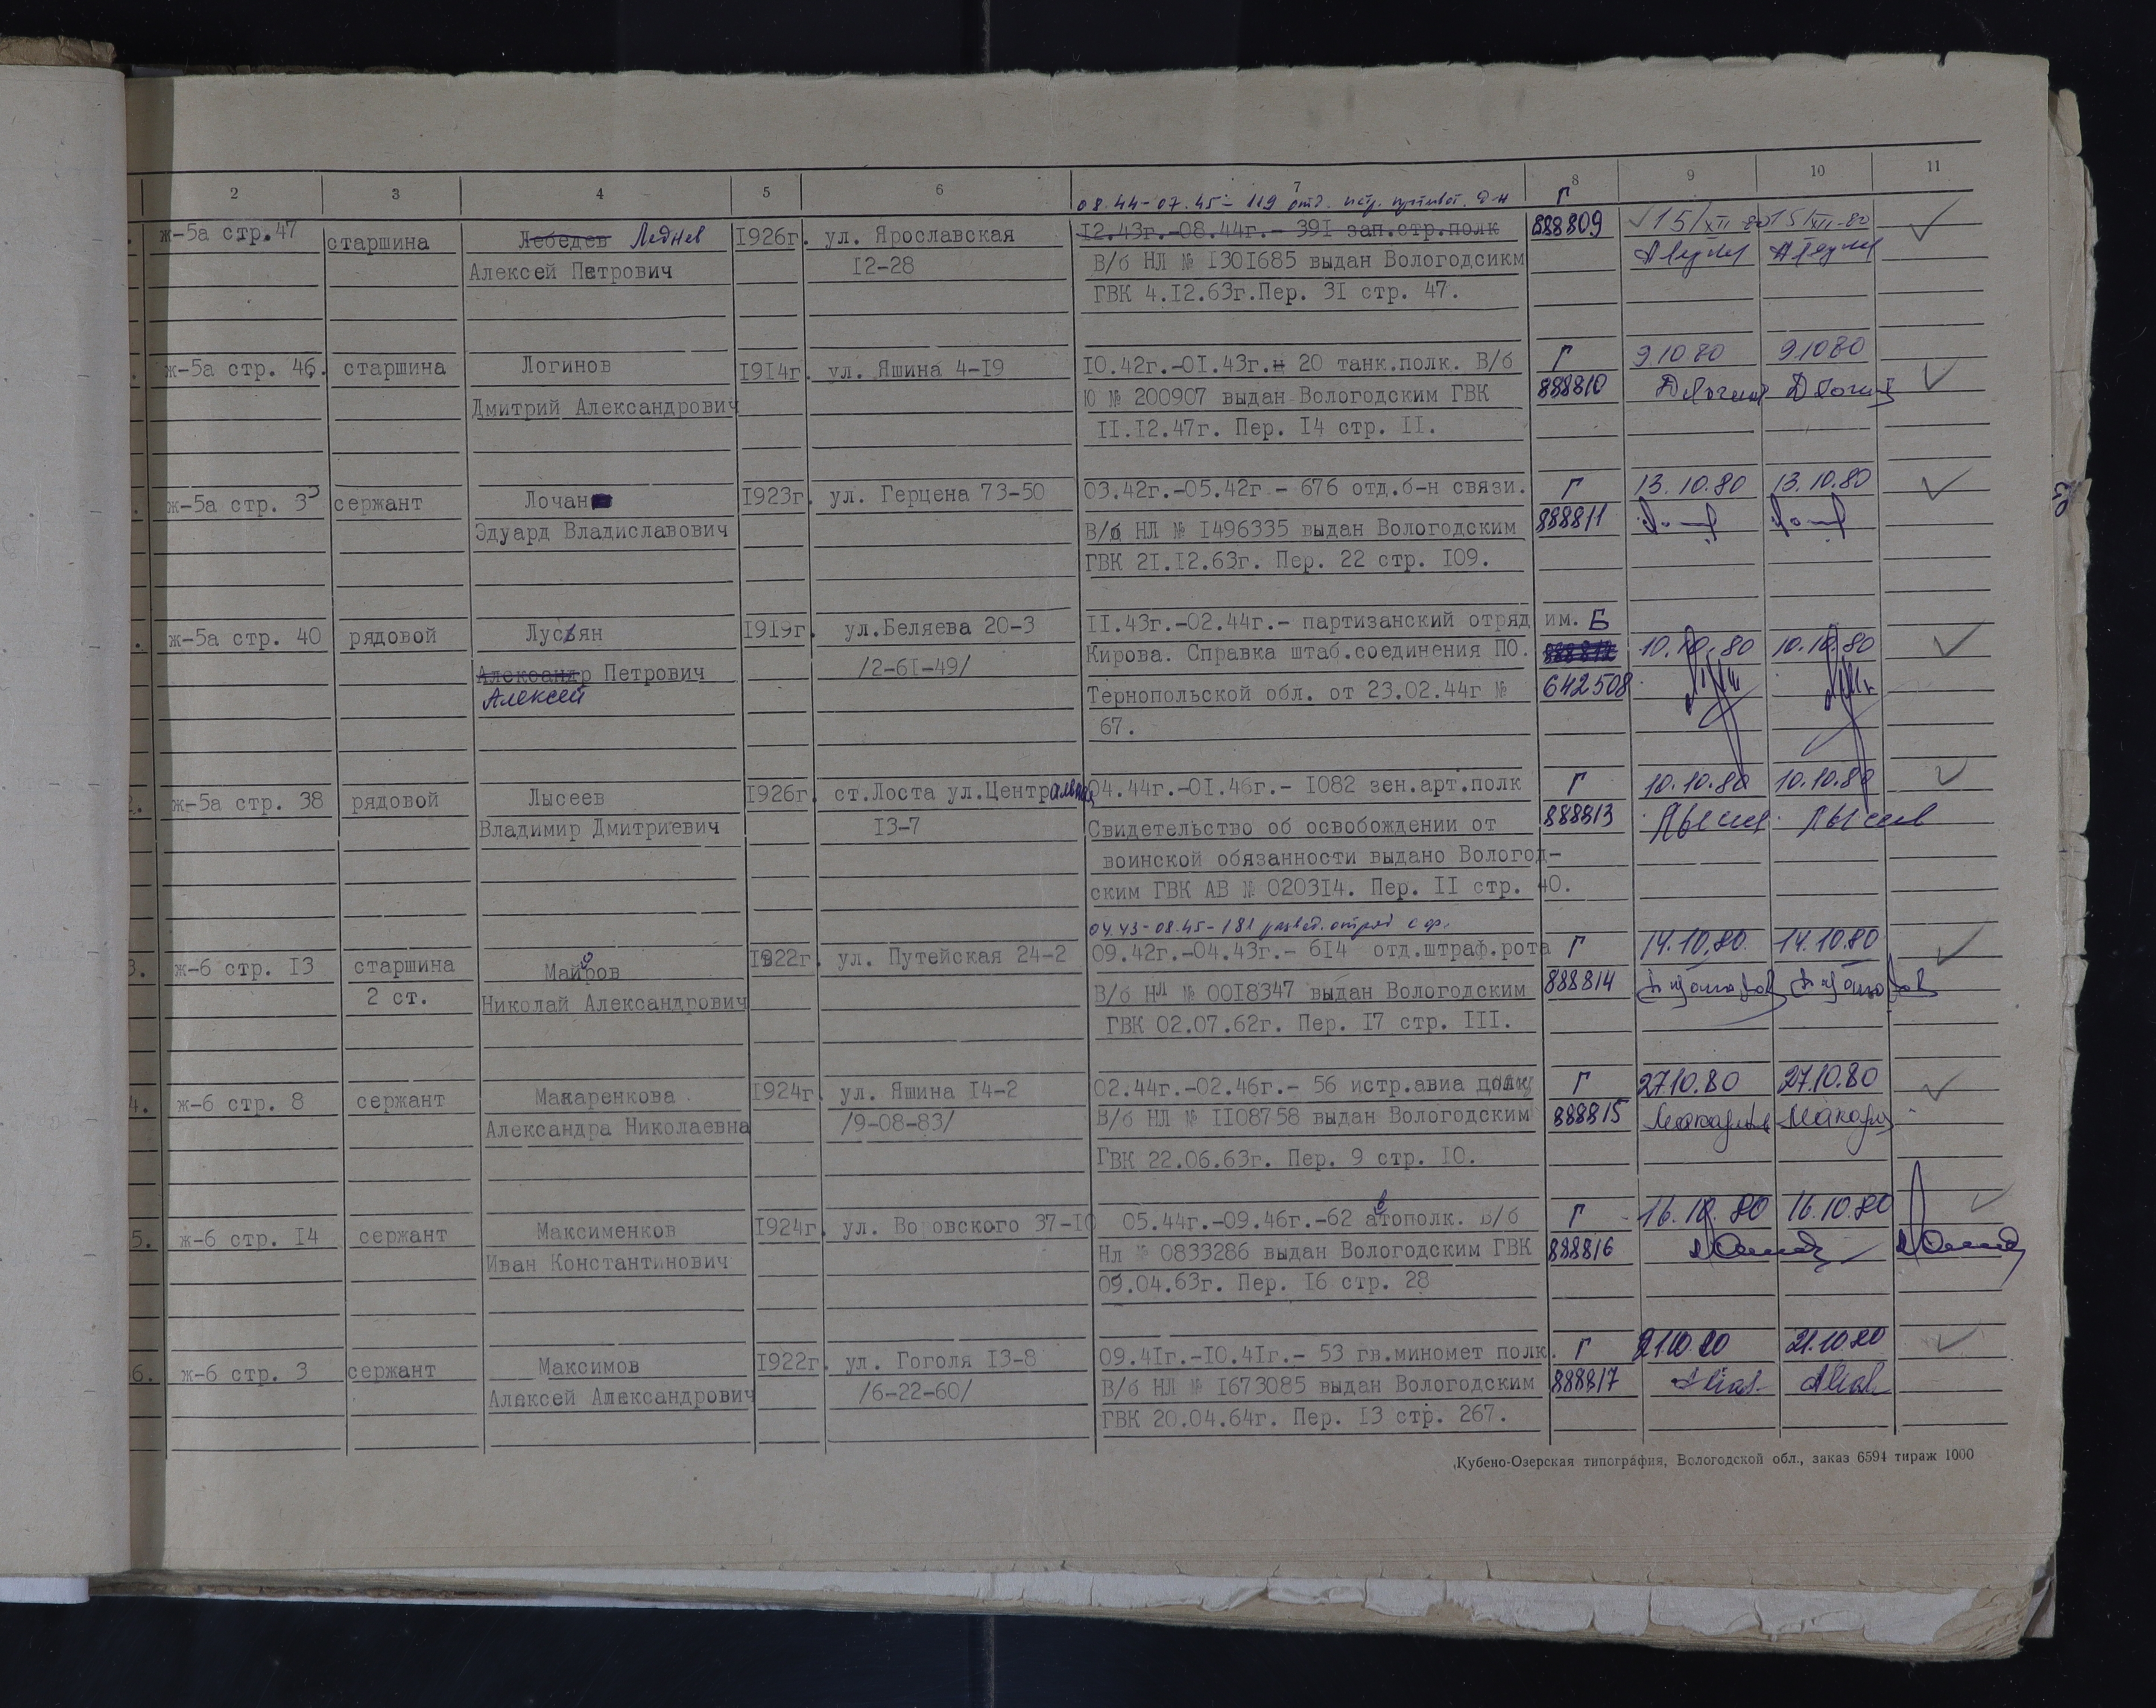 2 3 4 5 6 7 8 9 10 11
08.44-07.45- 119 отд. истр. противот. д-н Г
ж-5а стр.47 старшина Лебедев Леднев 1926г. ул. Ярославская 12.43г.-08.44г.- 391 зап.стр.полк 888809 15/XII-80 15/XII-80
Алексей Петрович 12-28 В/б НЛ № 1301685 выдан Вологодсикм
ГВК 4.12.63г.Пер. 31 стр. 47.
ж-5а стр. 46. старшина Логинов 1914г. ул. Яшина 4-19 10.42г.-01.43г.- 20 танк.полк. В/б Г 9.10 80 9.10 80
Дмитрий Александрович Ю № 200907 выдан Вологодским ГВК 888810
11.12.47г. Пер. 14 стр. 11.
ж-5а стр. 33 сержант Лочан 1923г. ул. Герцена 73-50 03.42г.-05.42г.- 676 отд.б-н связи. Г 13.10.80 13.10.80
Эдуард Владиславович В/б НЛ № 1496335 выдан Вологодским 888811
ГВК 21.12.63г. Пер. 22 стр. 109.
ж-5а стр. 40 рядовой Лусьян 1919г. ул.Беляева 20-3 11.43г.-02.44г.- партизанский отряд им. Б
Александр Петрович /2-61-49/ Кирова. Справка штаб.соединения ПО. 888812 10.10.80 10.10.80
Алексей Тернопольской обл. от 23.02.44г № 642508
67.
2. ж-5а стр. 38 рядовой Лысеев 1926г. ст.Лоста ул.Центральная 04.44г.-01.46г.- 1082 зен.арт.полк Г 10.10.80 10.10.80
Владимир Дмитриевич 13-7 Свидетельство об освобождении от 888813 Лысеев
воинской обязанности выдано Вологод-
ским ГВК АВ № 020314. Пер. 11 стр. 40.
04.43-08.45-181 развед.отряд С.ф.
3. ж-6 стр. 13 старшина Майоров 1922г. ул. Путейская 24-2 09.42г.-04.43г.- 614 отд.штраф.рота Г 14.10.80 14.10.80
2 ст. Николай Александрович В/б Нл № 0018347 выдан Вологодским 888814
ГВК 02.07.62г. Пер. 17 стр. 111.
4. ж-6 стр. 8 сержант Макаренкова 1924г ул. Яшина 14-2 02.44г.-02.46г.- 56 истр.авиа полк Г 27.10.80 27.10.80
Александра Николаевна /9-08-83/ В/б НЛ № 1108758 выдан Вологодским 888815
ГВК 22.06.63г. Пер. 9 стр. 10.
5. ж-6 стр. 14 сержант Максименков 1924г. ул. Воровского 37-10 05.44г.-09.46г.-62 автополк. В/б Г 16.10.80 16.10.80
Иван Константинович Нл № 0833286 выдан Вологодским ГВК 888816
09.04.63г. Пер. 16 стр. 28
6. ж-6 стр. 3 сержант Максимов 1922г. ул. Гоголя 13-8 09.41г.-10.41г.- 53 гв.миномет полк. Г 21.10.80 21.10.80
Алексей Александрович /6-22-60/ В/б НЛ № 1673085 выдан Вологодским 888817
ГВК 20.04.64г. Пер. 13 стр. 267.
Кубено-Озерская типография, Вологодской обл., заказ 6594 тираж 1000